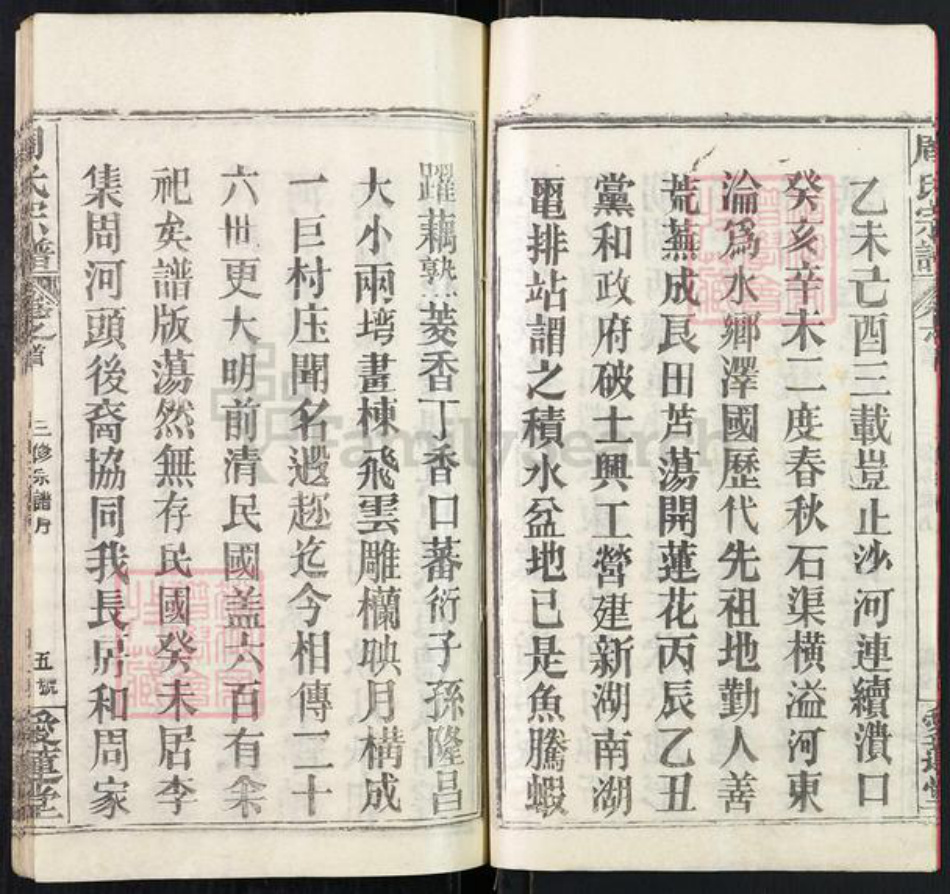 乙未己酉三載豈止沙河連續潰口
癸亥辛未二度春秋石渠橫溢河東
淪爲水鄉澤國歷代先祖地勤人善
荒蕪成良田芦蕩開蓮花丙辰乙丑
黨和政府破土興工營建新湖南湖
電排站謂之積水盆地已是魚騰蝦
躍藕熟菱香丁香口蕃衍子孫隆昌
大小兩塆畫棟飛雲雕欄映月構成
一巨村庄聞名遐迩迄今相傳二十
六世更大明前清民國盖六百有余
祀矣譜版蕩然無存民國癸未居李
集周河頭後裔協同我長房和周家
周氏宗譜
卷之首
三修宗譜序
五號
愛蓮堂
FamilySearch